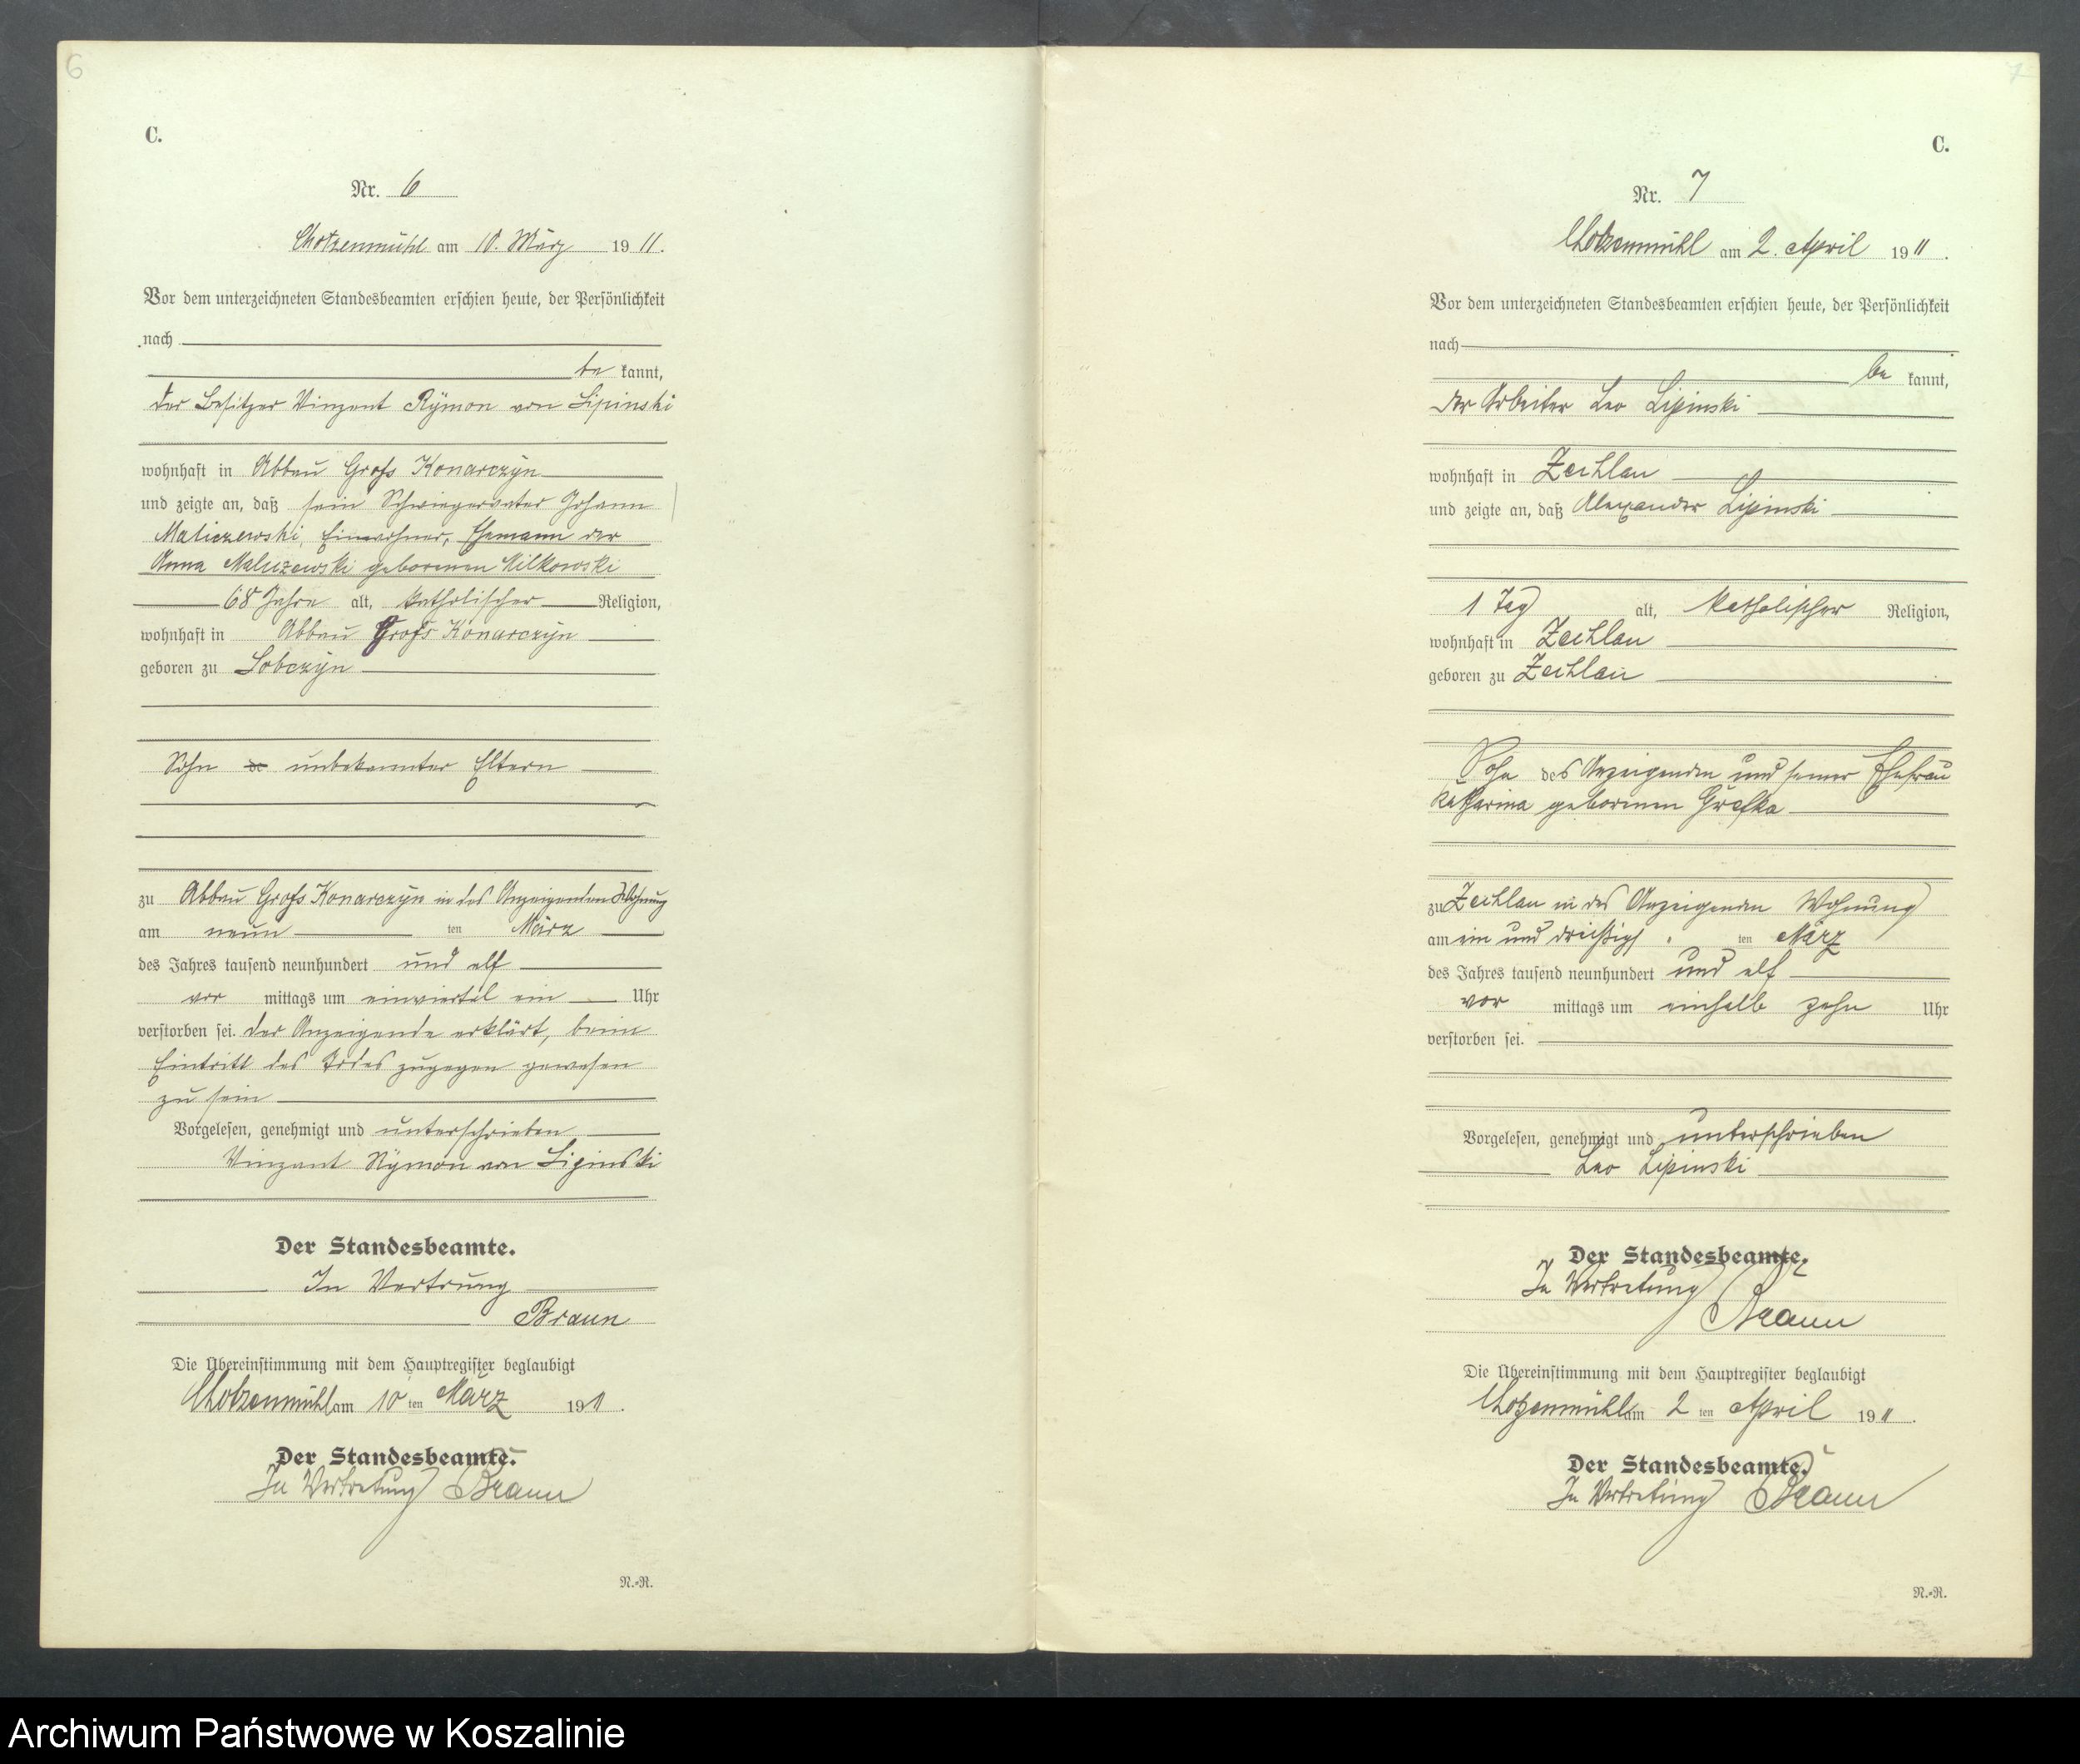 6
C.
Nr. 6
Chotzenmühl am 10. März 1911.
Vor dem unterzeichneten Standesbeamten erschien heute, der Persönlichkeit
nach
be kannt,
der Besitzer Vinzent Rÿmon von Lipinski
wohnhaft in Abbau Groß Konarczÿn
und zeigte an, daß sein Schwiegervater Johann
Maliczewski, Einwohner, Ehemann der
Anna Maliczewski geborenen Milkowski
68 Jahre alt, katholischer Religion,
wohnhaft in Abbau Groß Konarczÿn
geboren zu Sobczÿn
Sohn de unbekannter Eltern
zu Abbau Groß Konarczÿn in des Anzeigenden Wohnung
am neun ten März
des Jahres tausend neunhundert und elf
vor mittags um einviertel ein Uhr
verstorben sei. Der Anzeigende erklärt, beim
Eintritt des Todes zugegen gewesen
zu sein
Vorgelesen, genehmigt und unterschrieben
Vinzent Rÿmon von Lipinski
Der Standesbeamte.
In Vertrung
Braun
Die Übereinstimmung mit dem Hauptregister beglaubigt
Chotzenmühl am 10 ten März 1911.
Der Standesbeamte.
In Vertretung Braun
N.-R.
7
C.
Nr. 7
Chotzenmühl am 2. April 1911.
Vor dem unterzeichneten Standesbeamten erschien heute, der Persönlichkeit
nach
be kannt,
der Arbeiter Leo Lipinski
wohnhaft in Zechlau
und zeigte an, daß Alexander Lipinski
1 Tag alt, katholischer Religion,
wohnhaft in Zechlau
geboren zu Zechlau
Sohn des Anzeigenden und seiner Ehefrau
Katharina geborenen
zu Zechlau in des Anzeigenden Wohnung
am ein und dreißigs ten März
des Jahres tausend neunhundert und elf
vor mittags um einhalb zehn Uhr
verstorben sei.
Vorgelesen, genehmigt und unterschrieben
Leo Lipinski
Der Standesbeamte.
In Vertretung
Braun
Die Übereinstimmung mit dem Hauptregister beglaubigt
Chotzenmühl am 2 ten April 1911.
Der Standesbeamte.
In Vertretung Braun
N.-R.
Archiwum Państwowe w Koszalinie